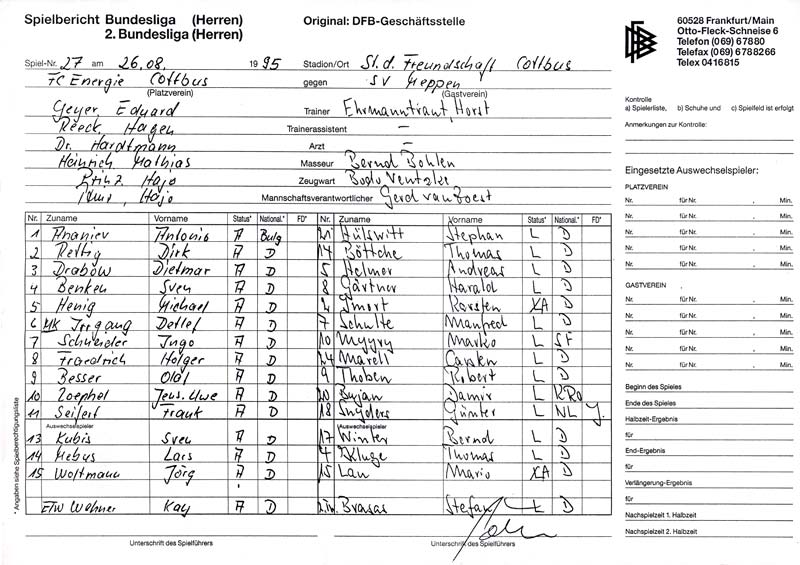 Spielbericht Bundesliga (Herren)
2. Bundesliga (Herren)
Original: DFB-Geschäftsstelle
60528 Frankfurt/Main
Otto-Fleck-Schneise 6
Telefon (069) 67880
Telefax (069) 6788266
Telex 0416815
Spiel-Nr. 27 am 26.08. 1995 Stadion/Ort St. d. Freundschaft Cottbus
FC Energie Cottbus gegen SV Meppen
(Platzverein) (Gastverein)
Geyer, Eduard Trainer Ehrmanntraut, Horst
Reeck, Hagen Trainerassistent –
Dr. Hardtmann Arzt –
Heinrich Mathias Masseur Bernd Bohlen
Prinz, Hajo Zeugwart Bodo Ventzke
Hajo Mannschaftsverantwortlicher Gerd van Zoest
Kontrolle
a) Spielerliste, b) Schuhe und c) Spielfeld ist erfolgt
Anmerkungen zur Kontrolle:
Eingesetzte Auswechselspieler:
PLATZVEREIN
Nr. für Nr. , Min.
Nr. für Nr. , Min.
Nr. für Nr. , Min.
Nr. für Nr. , Min.
Nr. für Nr. , Min.
GASTVEREIN
Nr. für Nr. , Min.
Nr. für Nr. , Min.
Nr. für Nr. , Min.
Nr. für Nr. , Min.
Nr. für Nr. , Min.
Beginn des Spieles
Ende des Spieles
Halbzeit-Ergebnis
für
End-Ergebnis
für
Verlängerung-Ergebnis
für
Nachspielzeit 1. Halbzeit
Nachspielzeit 2. Halbzeit
Nr. Zuname Vorname Status* National.* FD* Nr. Zuname Vorname Status* National.* FD*
1 Ananiev Antonio A Bulg 21 Hülswitt Stephan L D
2 Rettig Dirk A D 14 Böttche Thomas L D
3 Drabow Dietmar A D 5 Helmer Andreas L D
4 Benken Sven A D 8 Gärtner Harald L D
5 Henig Michael A D 2 Smort Karsten XA D
6 MK Irrgang Detlef A D 7 Schulte Manfred L D
7 Schneider Ingo A D 10 Myyry Marko L SF
8 Frardrich Holger A D 24 Marell Carsten L D
9 Besser Olaf A D 9 Thoben Robert L D
10 Zoephel Jens-Uwe A D 20 Bujan Damir L KRO
11 Seifert Frank A D 18 Snijders Günter L NL J.
Auswechselspieler Auswechselspieler
13 Kubis Sven A D 17 Winter Bernd L D
14 Mebus Lars A D 4 Kluge Thomas L D
15 Woltmann Jörg A D 15 Lau Mario XA D
ETW Wehner Kay A D Brasas Stefan L D
Unterschrift des Spielführers Unterschrift des Spielführers
* Angaben siehe Spielberechtigungsliste